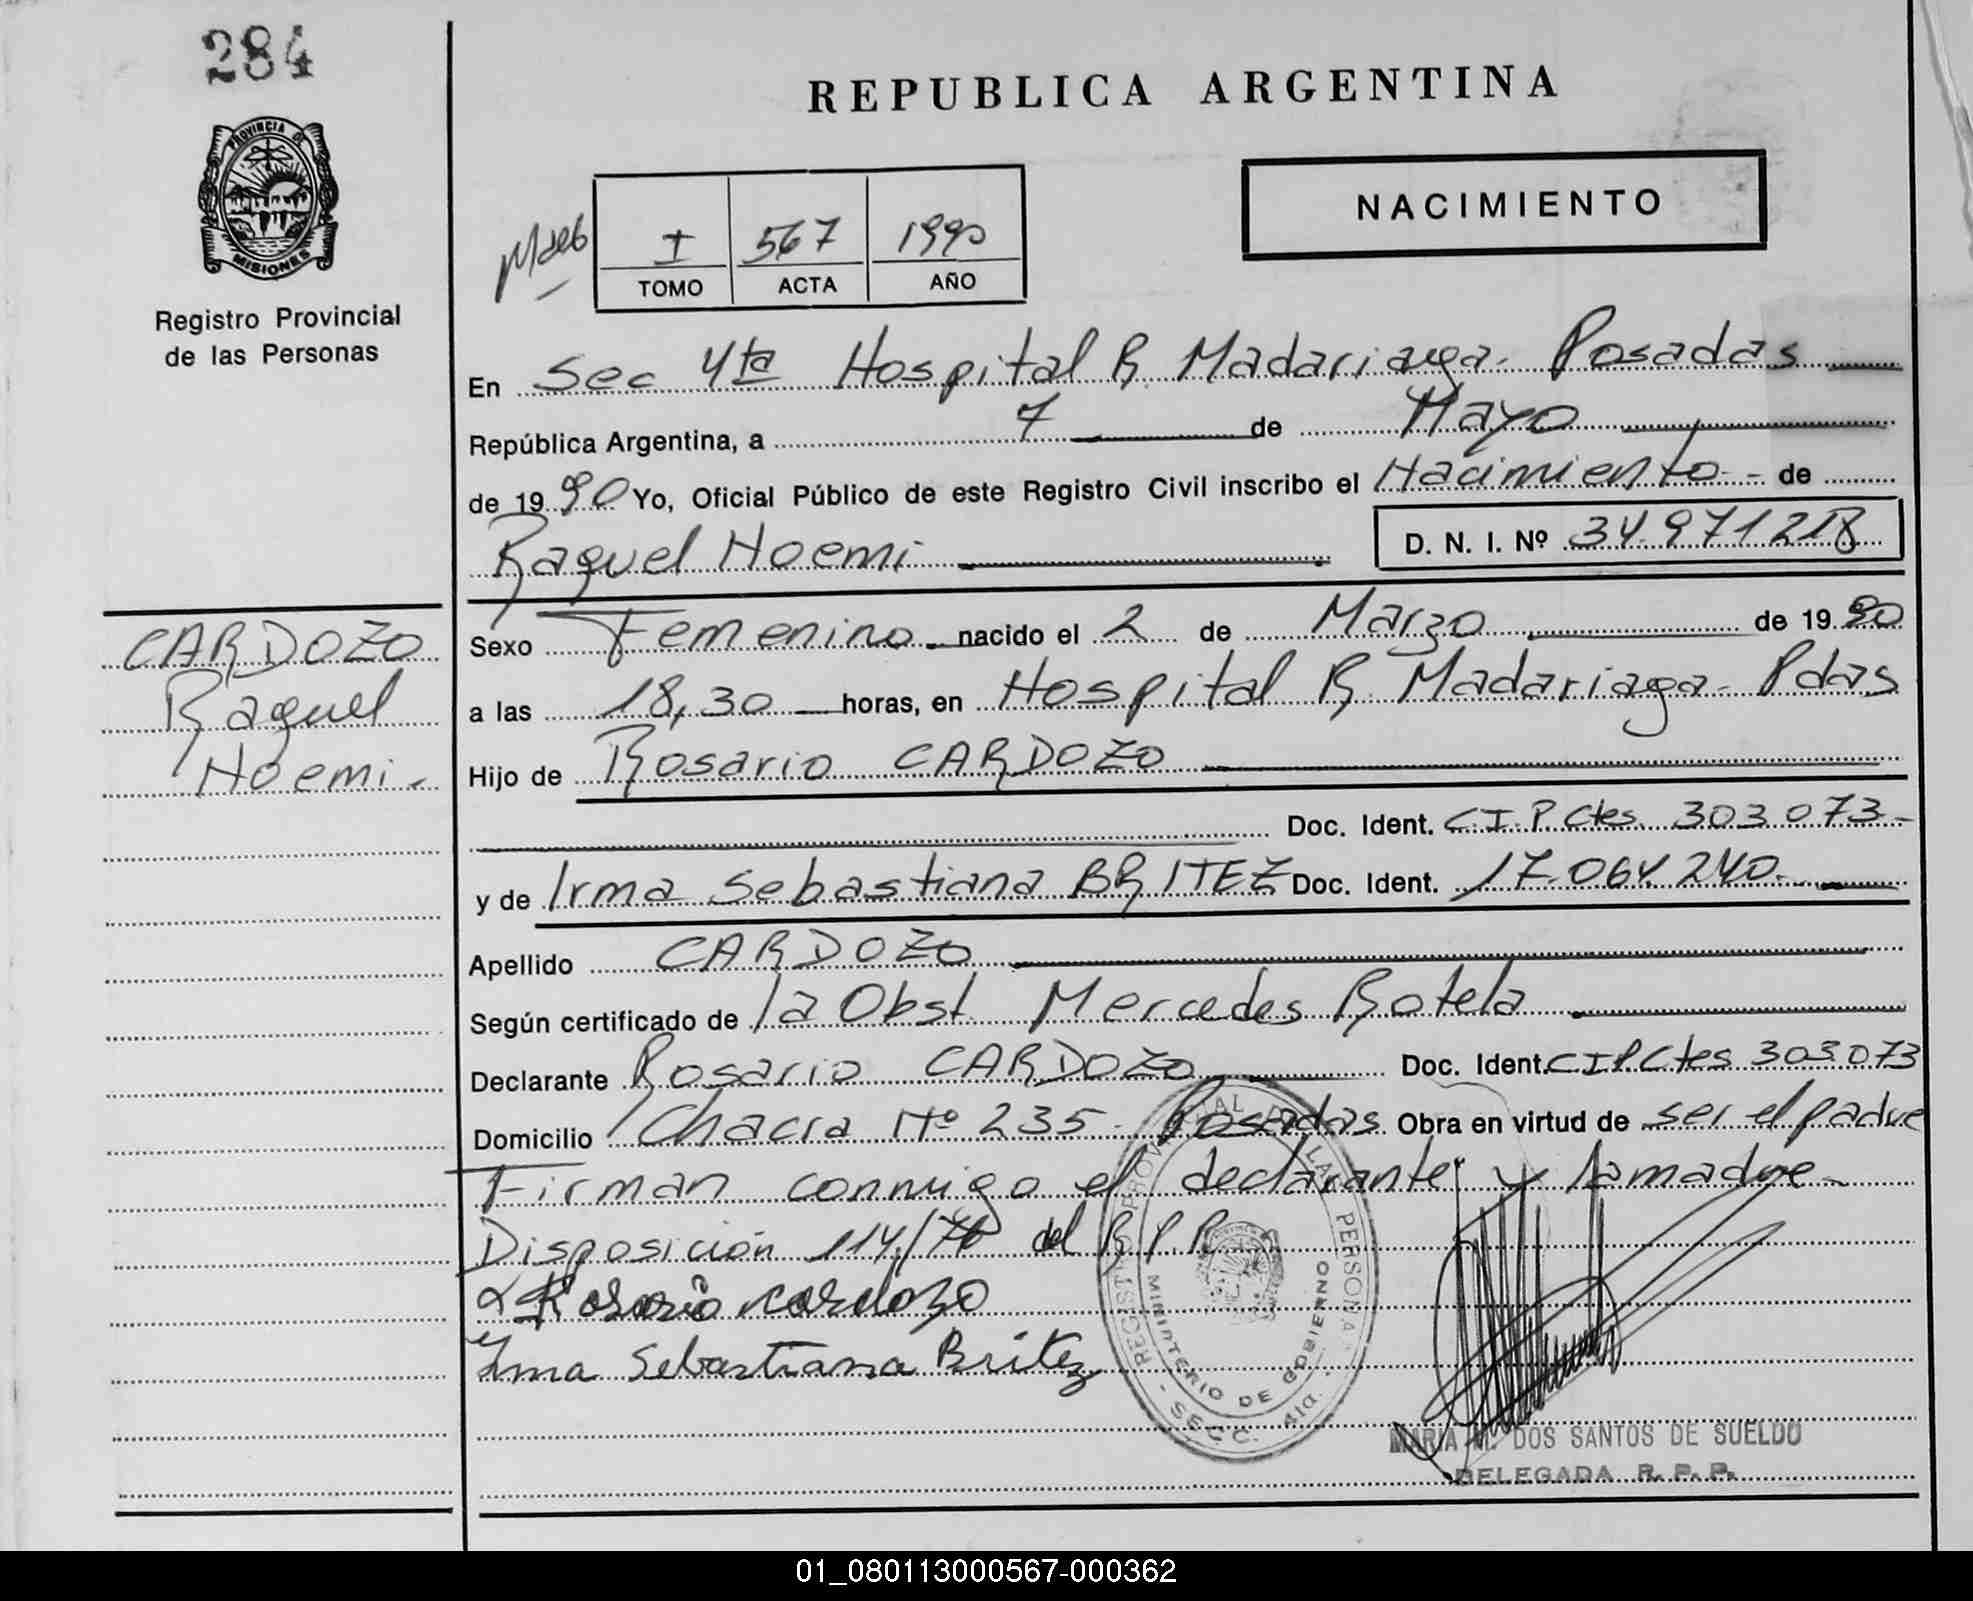 284
PROVINCIA DE
MISIONES
Registro Provincial
de las Personas
REPUBLICA ARGENTINA
NACIMIENTO
I 567 1990
TOMO ACTA AÑO
En Sec 4ta Hospital R. Madariaga - Posadas
República Argentina, a 7 de Mayo
de 1990 Yo, Oficial Público de este Registro Civil inscribo el Nacimiento - de
Raquel Noemi D. N. I. Nº 34.971.218
CARDOZO
Raquel
Noemi.
Sexo Femenino nacido el 2 de Marzo de 1990
a las 18,30 horas, en Hospital R. Madariaga - Pdas
Hijo de Rosario CARDOZO
Doc. Ident. C.I.P. Ctes. 303073-
y de Irma Sebastiana BRITEZ Doc. Ident. 17.064.240.
Apellido CARDOZO
Según certificado de la Obst. Mercedes Rotela
Declarante Rosario CARDOZO Doc. Ident. C I P Ctes 303.073
Domicilio Chacra Nº 235 - Posadas Obra en virtud de ser el padre
Firman conmigo el declarante y la madre-
Disposición 114/76 del R P P.
Rosario cardozo
Irma Sebastiana Britez
REGISTRO PROVINCIAL DE LAS PERSONAS
MINISTERIO DE GOBIERNO
- SECC. 4ta. -
MARIA M. DOS SANTOS DE SUELDO
DELEGADA R. P. P.
01_080113000567-000362